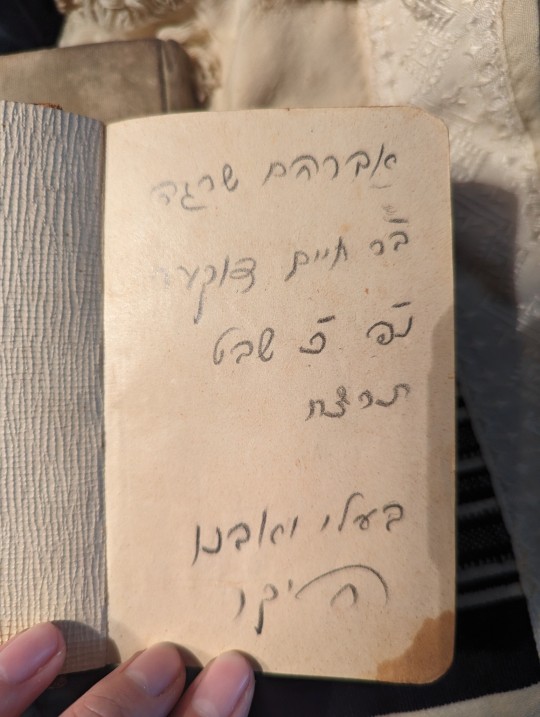 אברהם שרגה
ב״ר חיים
נפ׳ כ׳ שבט
תרצח
בעלי ואבנו
היקר